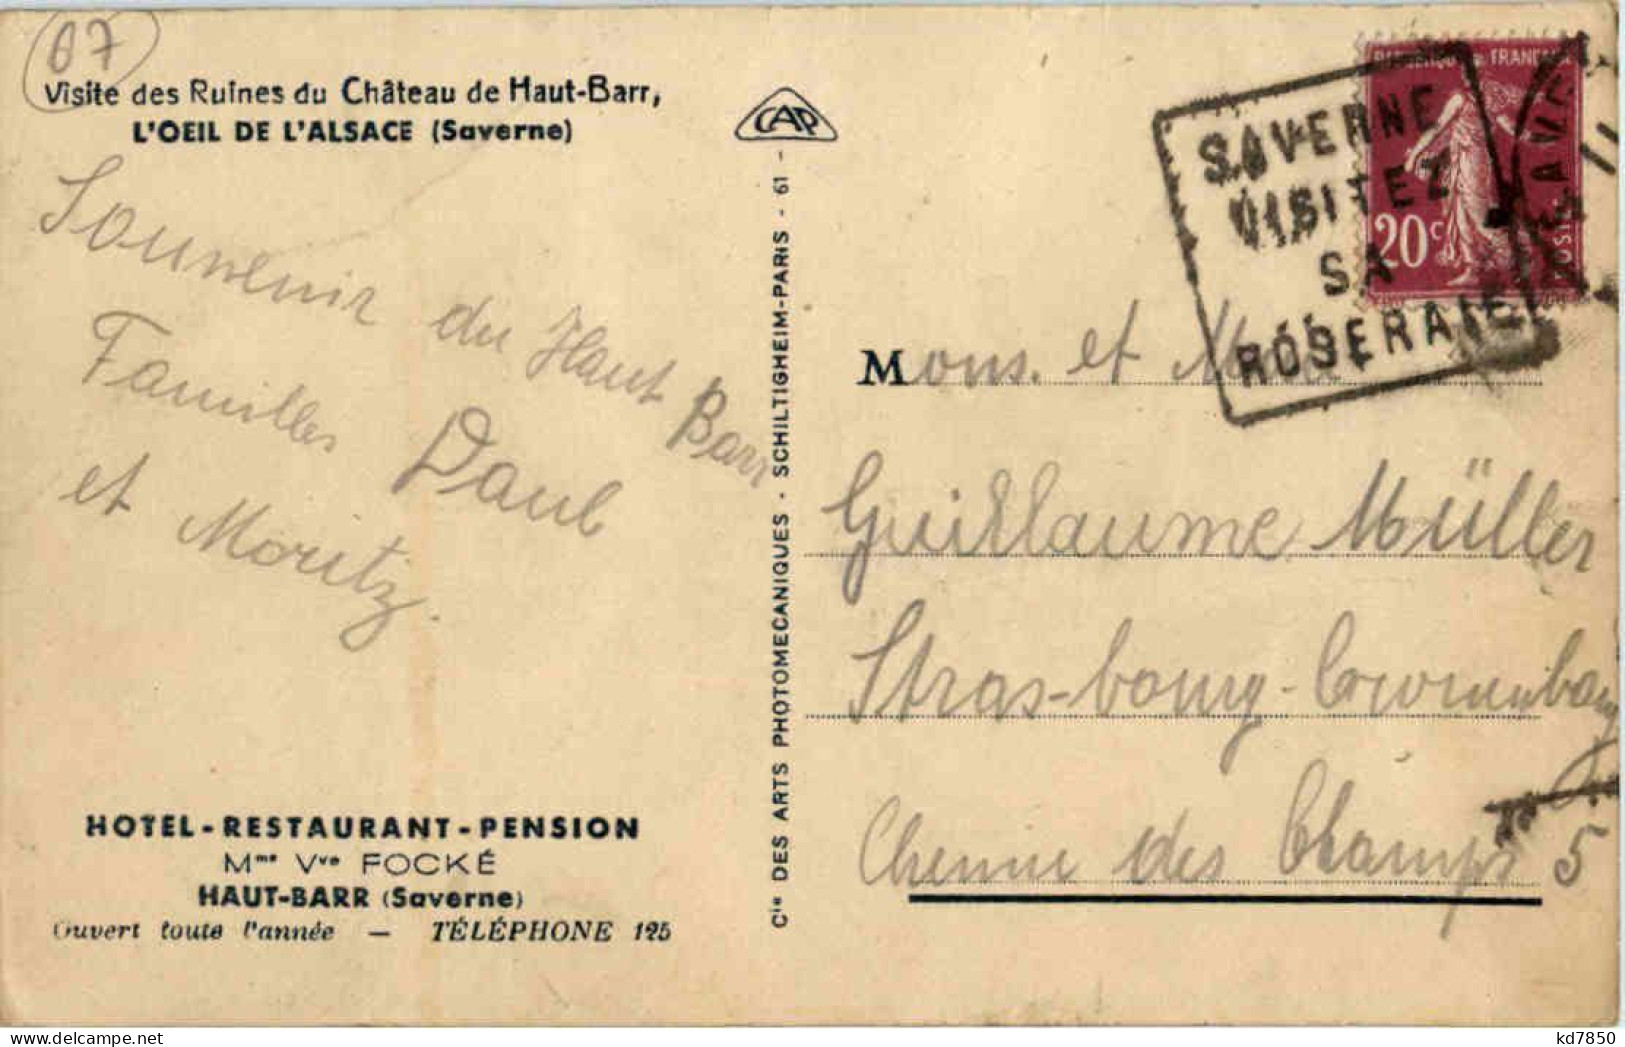 67
Visite des Ruines du Château de Haut-Barr,
L'OEIL DE L'ALSACE (Saverne)
Souvenir du Haut Barr
Familles Daul
et Moritz.
HOTEL - RESTAURANT - PENSION
Mme Vve FOCKÉ
HAUT-BARR (Saverne)
Ouvert toute l'année — TÉLÉPHONE 125
CAP
Cie DES ARTS PHOTOMECANIQUES - SCHILTIGHEIM-PARIS - 61 -
SAVERNE
VISITEZ
SA
ROSERAIE
20c
Mons. et
Guillaume Müller
Stras-bourg-Cronenbourg
Chemin des Champs 5
kd7850